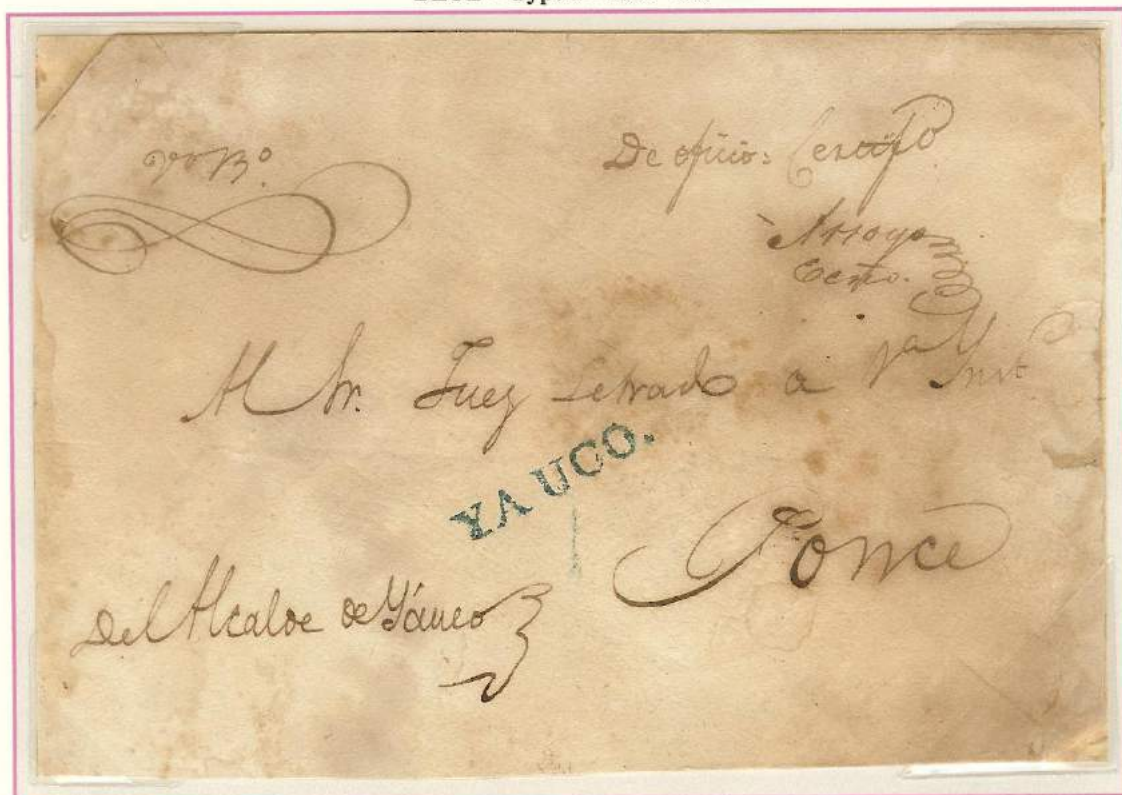 VoBo.
De oficio: Certifo
Arroyo
Ecmo.
Al Sr. Juez Letrado a 1a Insta
YAUCO.
Ponce
Del Alcalde de Yáuco